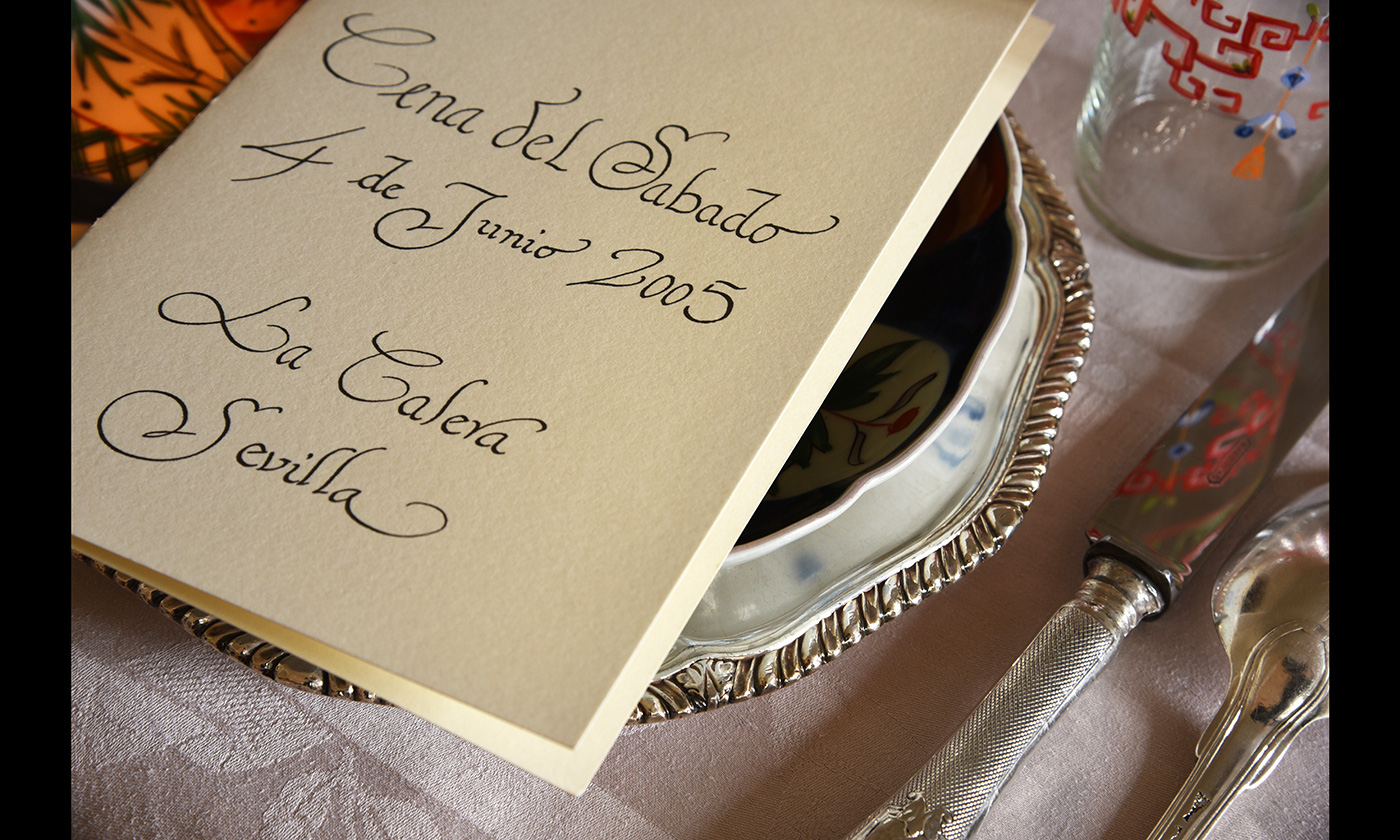 Cena del Sabado
4 de Junio 2005
La Calera
Sevilla